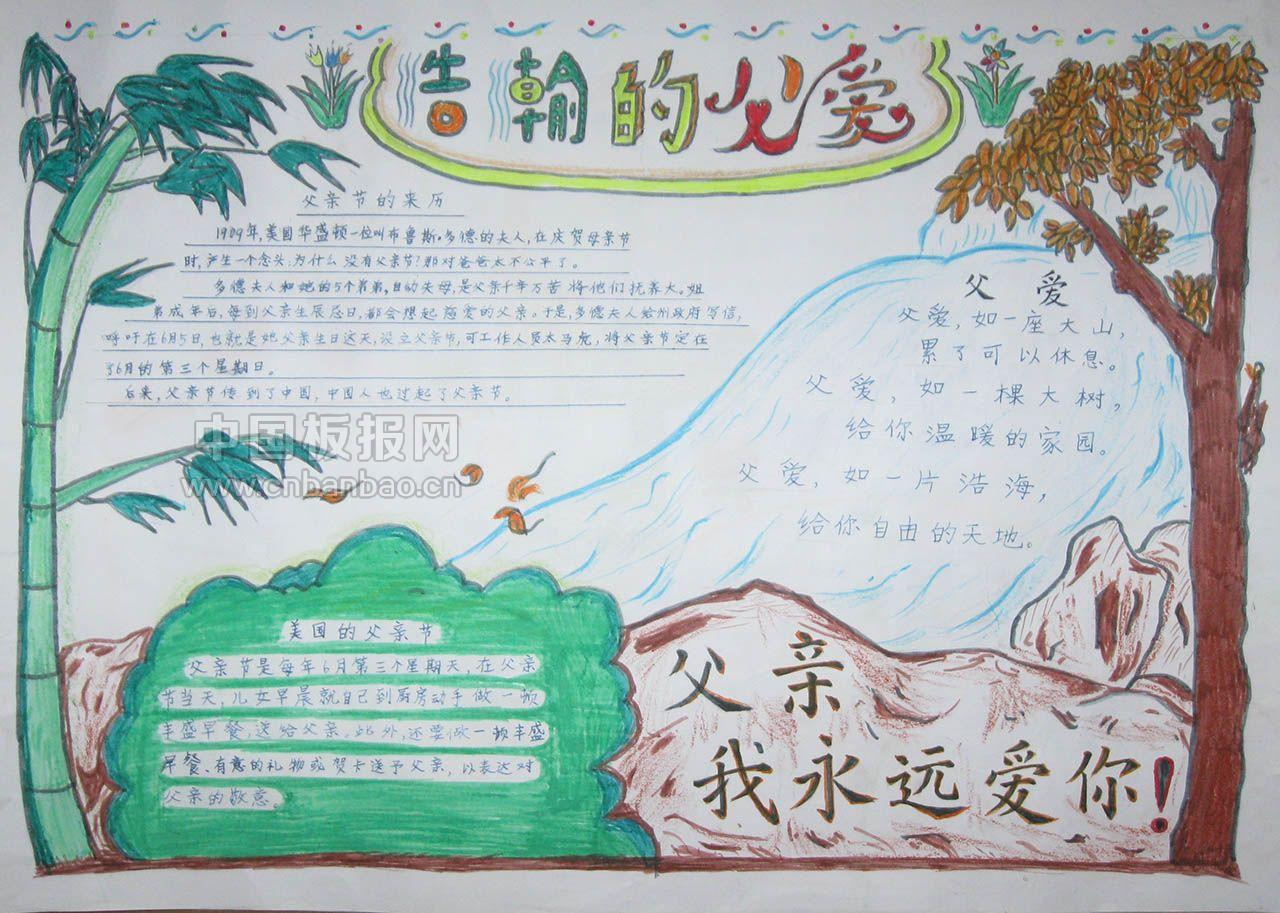 浩瀚的父爱
父亲节的来历
1909年,美国华盛顿一位叫布鲁斯·多德的夫人,在庆贺母亲节
时,产生一个念头:为什么没有父亲节?那对爸爸太不公平了。
多德夫人和她的5个弟弟,自幼失母,是父亲千辛万苦将他们抚养大。姐
弟成年后,每到父亲生辰忌日,都会想起慈爱的父亲。于是,多德夫人给州政府写信,
呼吁在6月5日,也就是她父亲生日这天,设立父亲节,可工作人员太马虎,将父亲节定在
了6月的第三个星期日。
后来,父亲节传到了中国,中国人也过起了父亲节。
中国板报网
www.cnbanbao.cn
父爱
父爱,如一座大山,
累了可以休息。
父爱,如一棵大树,
给你温暖的家园。
父爱,如一片浩海,
给你自由的天地。
美国的父亲节
父亲节是每年6月第三个星期天,在父亲
节当天,儿女早晨就自己到厨房动手做一顿
丰盛早餐,送给父亲。此外,还要做一顿丰盛
早餐、有意的礼物或贺卡送予父亲,以表达对
父亲的敬意。
父亲
我永远爱你!